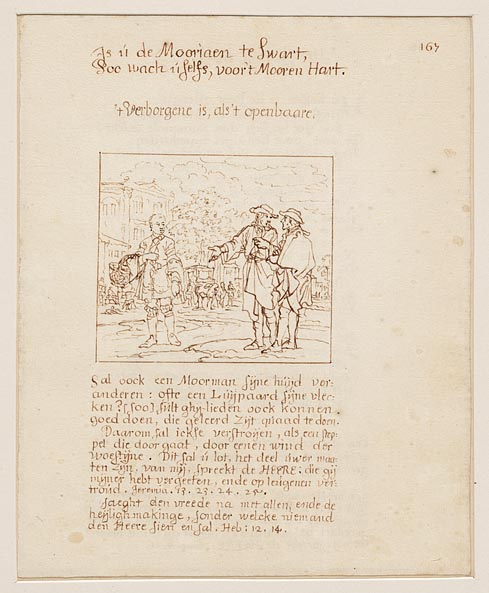 Is ù de Mooriaen te swart,
Soo wach ù selfs, voor't Mooren Hart.
167
't Verborgene is, als't openbaare.
Sal oock een Moorman sijne hùijd ver:
anderen: ofte een Lùijpaard sijne vlec:
ken? [soo], sùlt ghij-lieden oock konnen
goed doen, die geleerd zijt qùaad te doen.
Daarom, sal ickse verstroijen, als een stop:
pel die doorgaat, door eenen wind der
woestijne. Dit sal ù lot, het deel ùwer maa:
ten zijn, van mij, spreekt de HEERE: die gij
mijner hebt vergeeten, ende op leùgenen ver:
troùd. Jeremia. 13. 23. 24. 25.
Jaeght den vreede na met allen, ende de
heijlighmakinge, sonder welcke niemand
den Heere sien en sal. Heb: 12. 14.